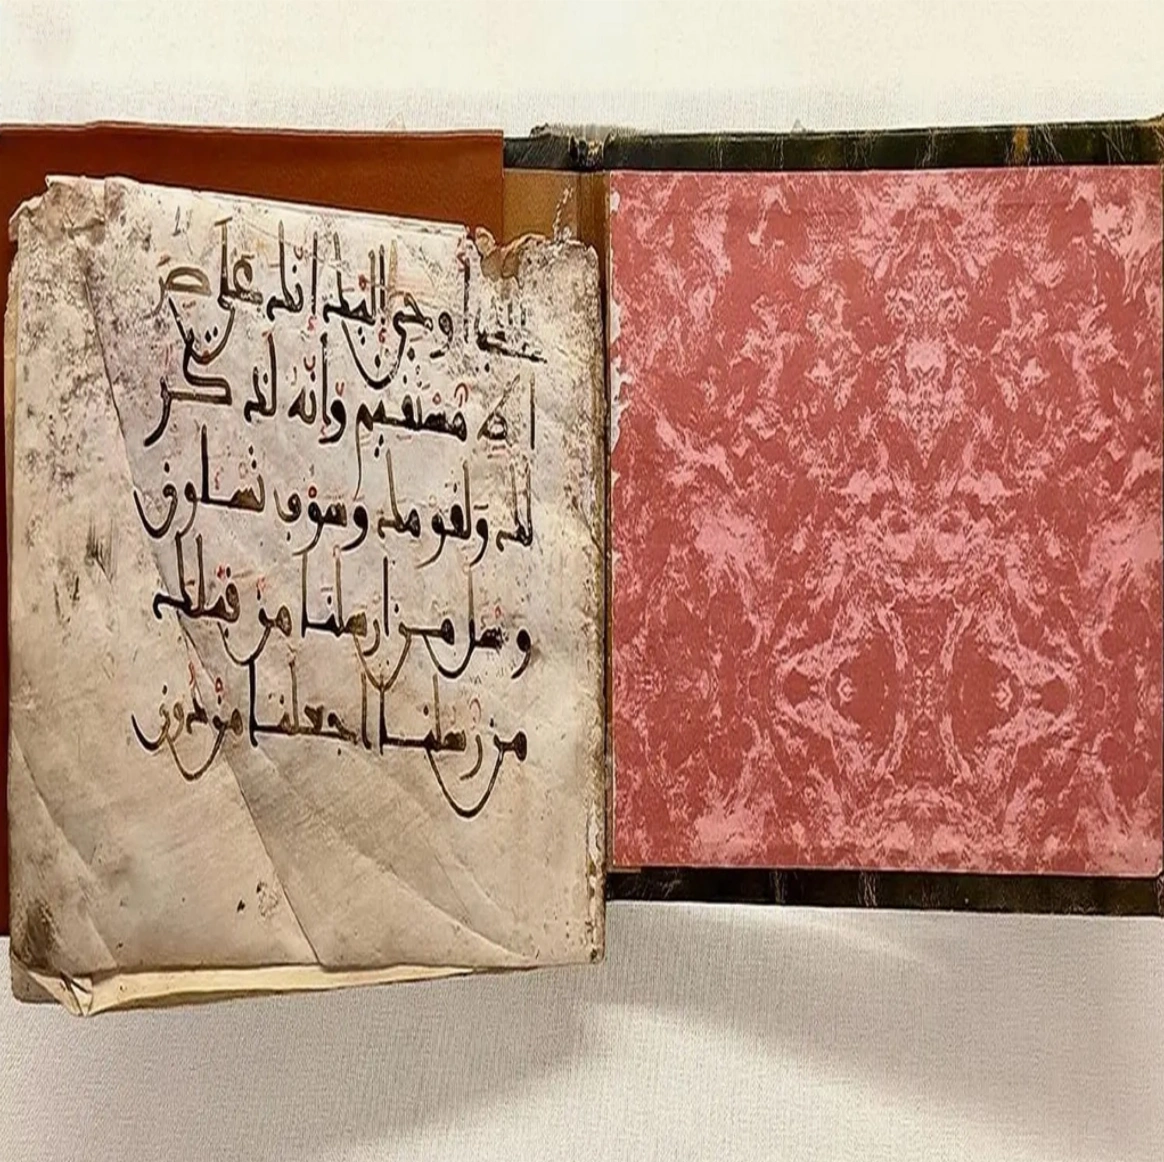 أوحي إليك إنّك عَلَى صِر
اط مُسْتَقيم وَإنّهُ لَذكر
لك وَلقومك وَسَوْف تُسْـلون
وسْـل مَن ارسلنا مِنْ قبلك
من رُسلنا اجعلنا مِنْ دُون